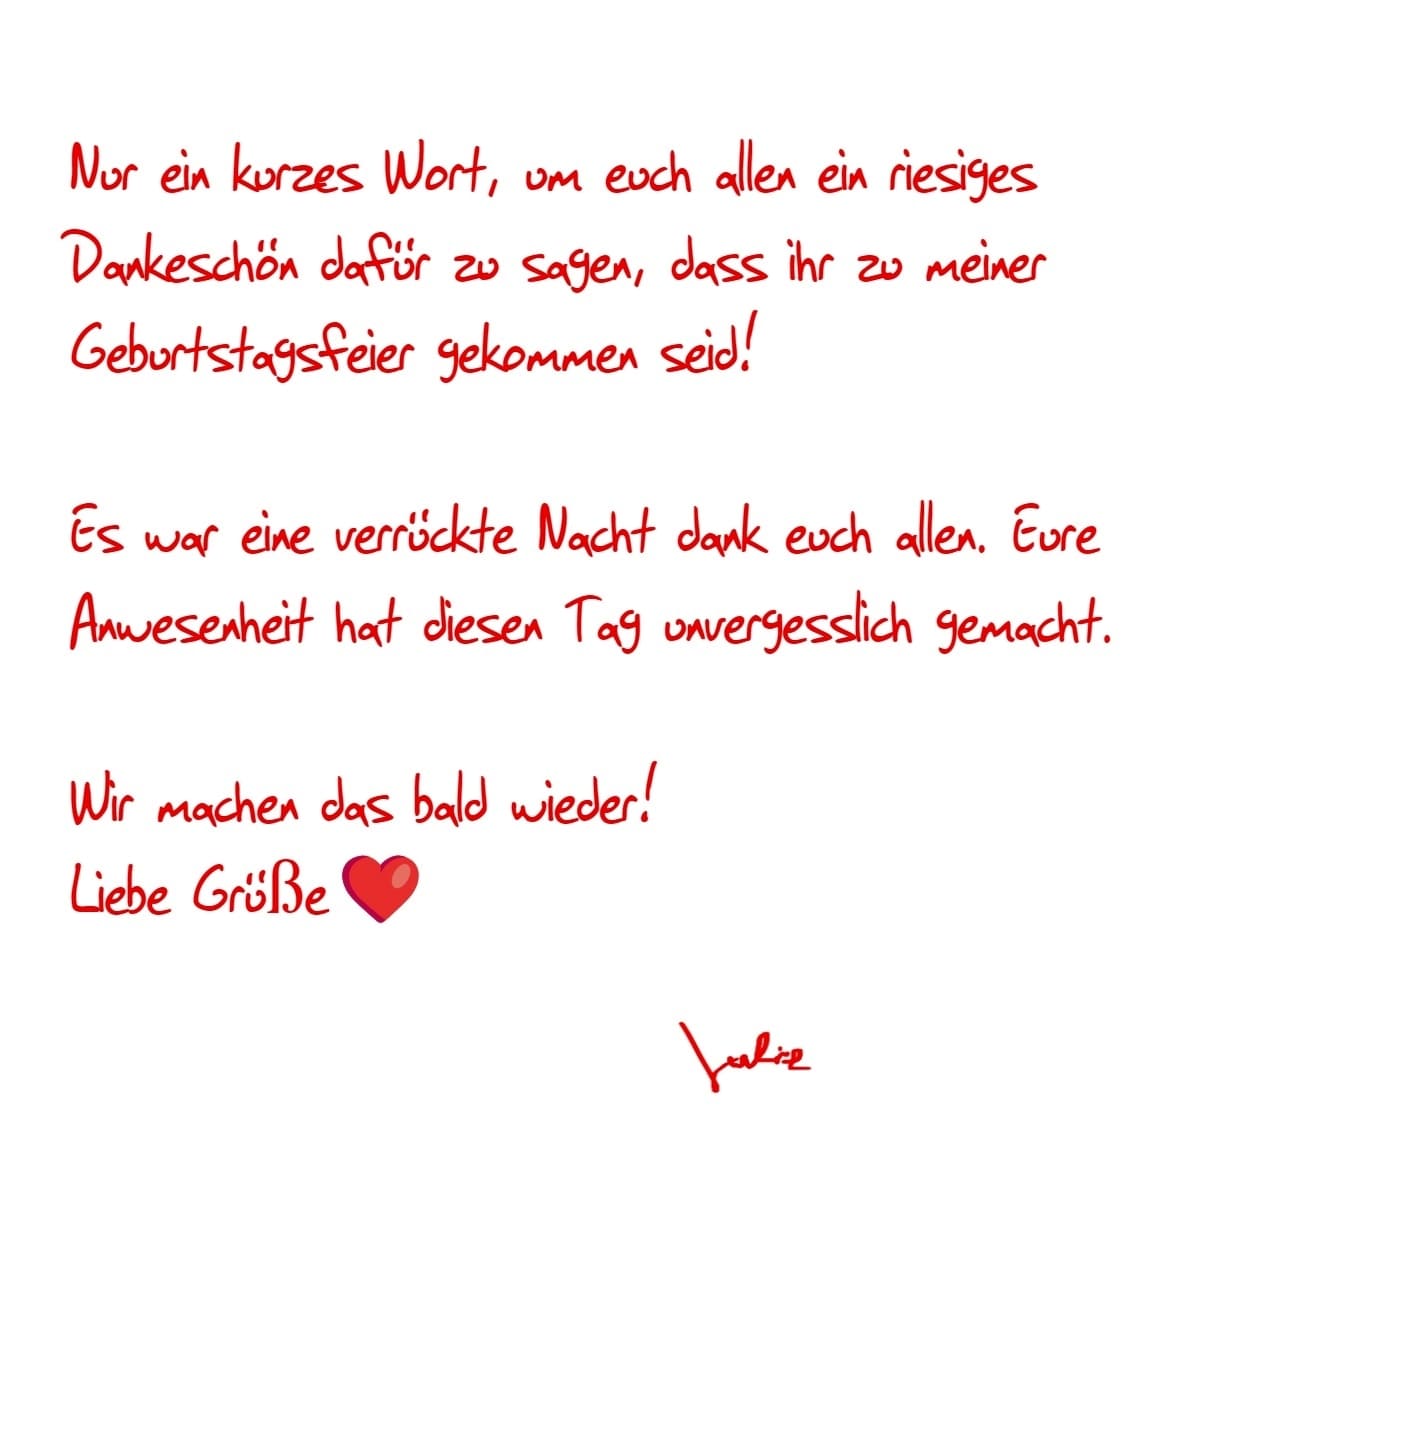 Nur ein kurzes Wort, um euch allen ein riesiges
Dankeschön dafür zu sagen, dass ihr zu meiner
Geburtstagsfeier gekommen seid!
Es war eine verrückte Nacht dank euch allen. Eure
Anwesenheit hat diesen Tag unvergesslich gemacht.
Wir machen das bald wieder!
Liebe Grüße ❤️